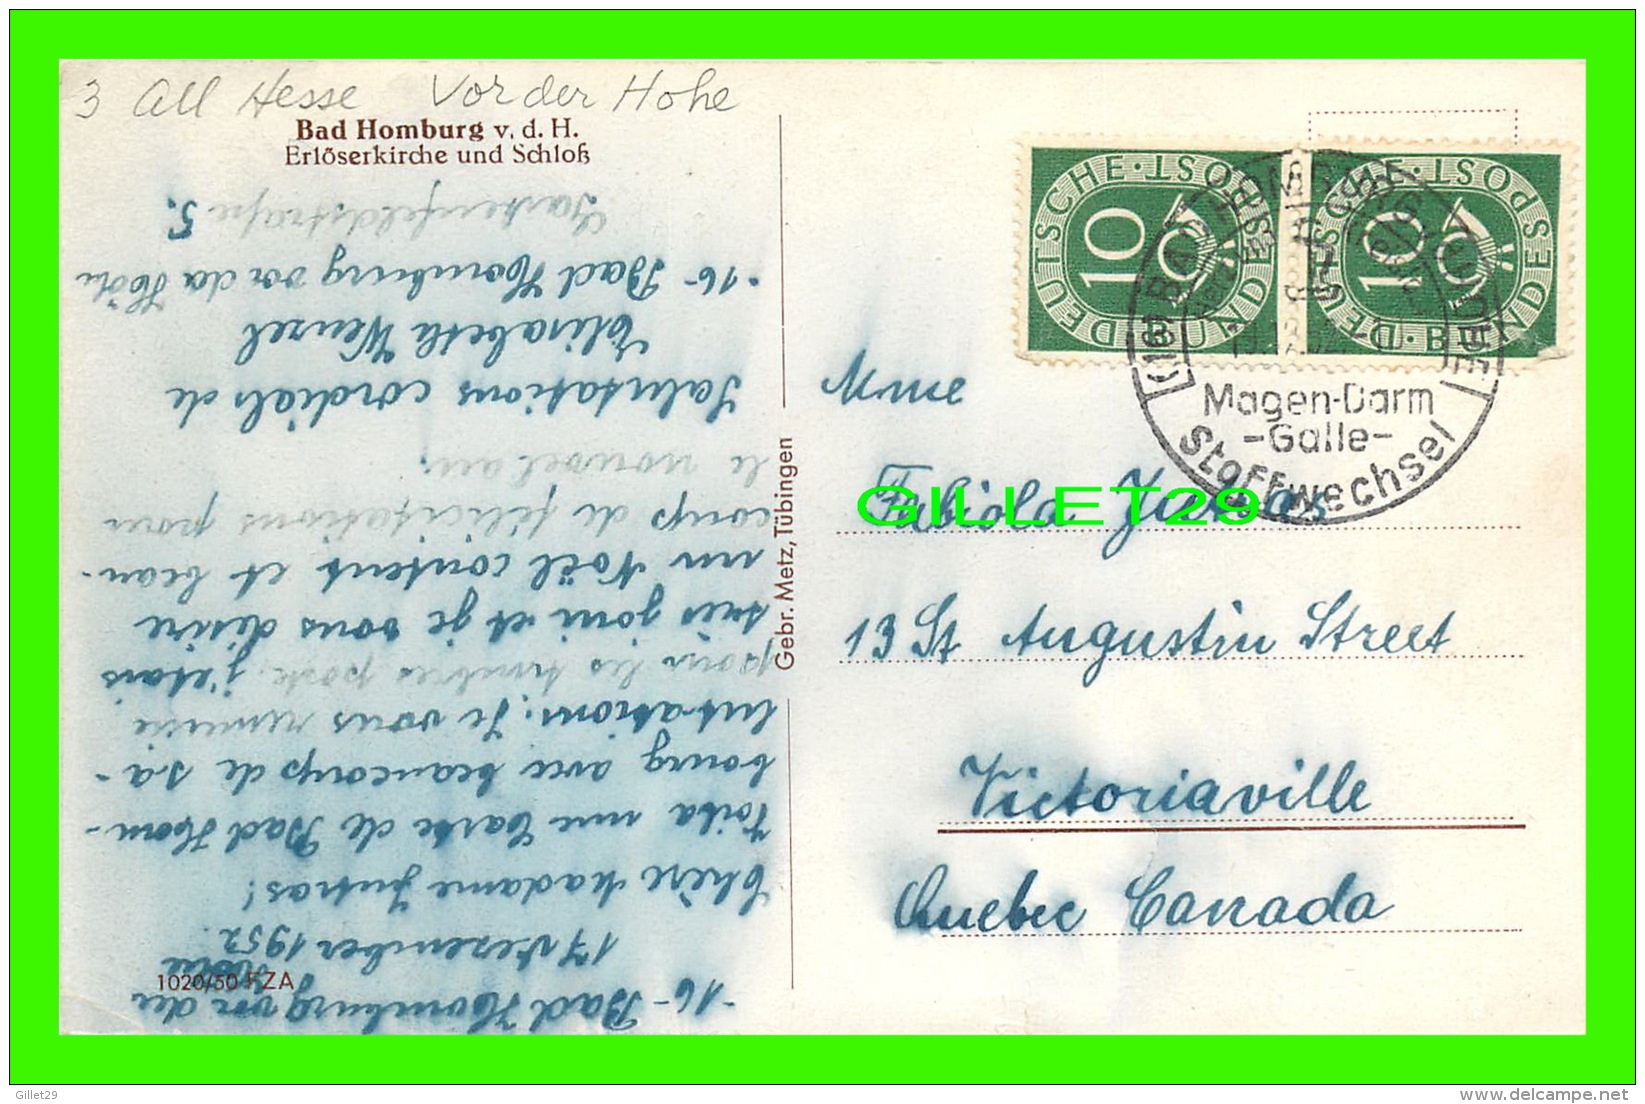 3 All Hesse Vor der Hohe
Bad Homburg v. d. H.
Erlöserkirche und Schloß
-16- Bad Homburg vor der
Höhe
17 Dezember 1952.
Chère Madame Jutras!
Voila une Carte de Bad Hom-
bourg avec beaucoup de sa-
lutations. Je vous remercie
pour les timbres poste, j'etais
très joui et je vous désire
un Noël content et beau-
coup de félicitations pour
le nouvel an,
Salutations cordials de
Elisabeth Wenzel
-16- Bad Homburg vor da Höh
5.
1020/50 FZA
Gebr. Metz, Tübingen
DEUTSCHE · POST · BUNDESPOST
10
DEUTSCHE · POST · BUNDESPOST
10
(16) BAD HOMBURG
Magen-Darm
-Galle-
Stoffwechsel
Mme
Fabiola Jutras
GILLET29
13 St Augustin Street
Victoriaville
Quebec Canada
Gillet29
www.delcampe.net